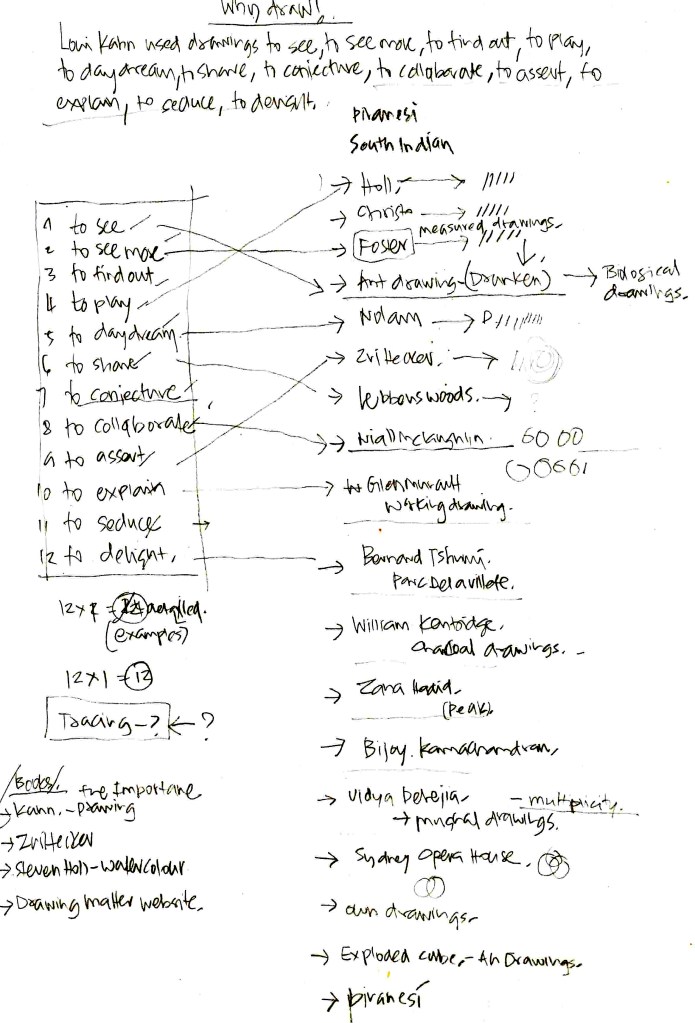 Why draw!
Loui Kahn used drawings to see, to see more, to find out, to play,
to daydream, to share, to conjecture, to collaborate, to assert, to
explain, to seduce, to delight.
piranesi
South Indian
1 to see
2 to see more
3 to find out
4 to play
5 to daydream
6 to share
7 to conjecture
8 to collaborate
9 to assert
10 to explain
11 to seduce
12 to delight.
12 x 2 = 24
(examples)
12 x 1 = 12
Tracing - ? ← ?
Books.
Kahn. - Drawing
→ Zvi Hecker
→ Steven Holl - watercolour
→ Drawing matter website.
→ Holl, →
→ Christo →
→ Foster → measured drawings.
→ Ant drawing - (Drunken) → Biological
drawings.
→ Nolam →
→ Zvi Hecker. →
→ lebbeus woods. → ?
→ Niall Mclaughlin.
→ Glenn Murcutt
working drawing.
→ Bernard Tshumi.
Parc De la villete.
→ William Kentridge.
charcoal drawings. -
→ Zaha Hadid.
(peak)
→ Bijoy. Ramachandran,
→ Vidya Dehejia. - multiplicity.
→ mughal drawings.
→ Sydney Opera House.
→ own drawings.
→ Exploded cube, - An Drawings.
→ piranesi